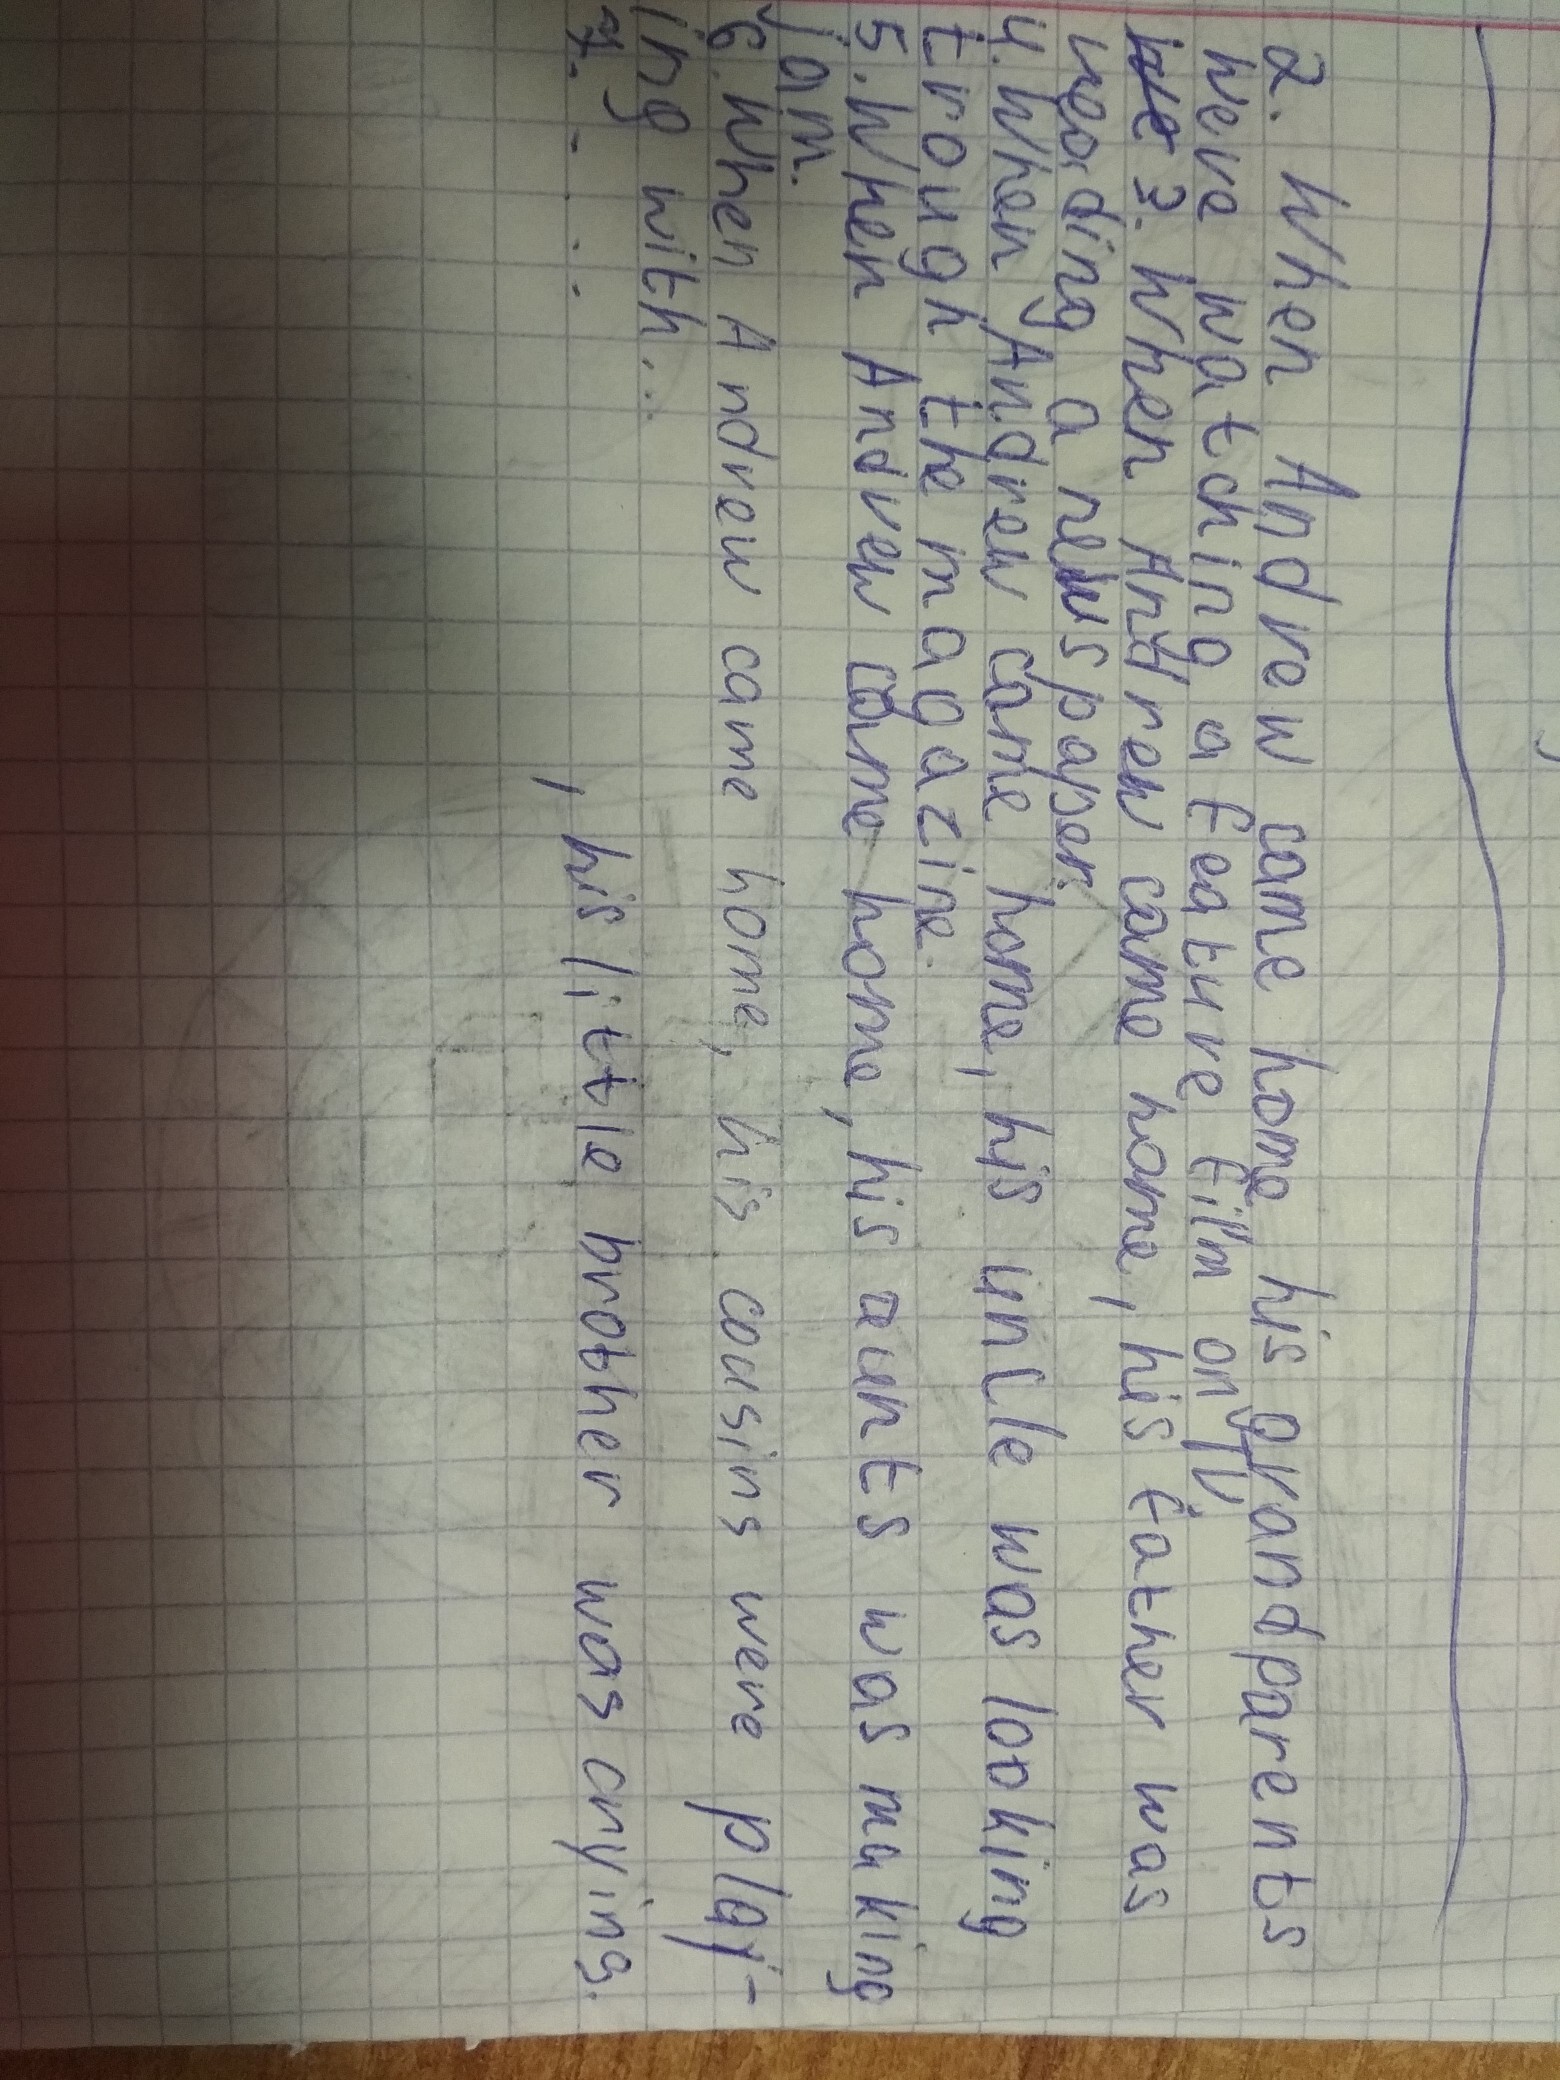 2. When Andrew came home his grandparents
were watching a feature film on TV.
3. When Andrew came home, his father was
reading a newspaper.
4. When Andrew came home, his uncle was looking
trough the magazine.
5. When Andrew came home, his aunts was making
jam.
6. When Andrew came home, his cousins were play-
ing with...
7. - . . - , his little brother was crying.